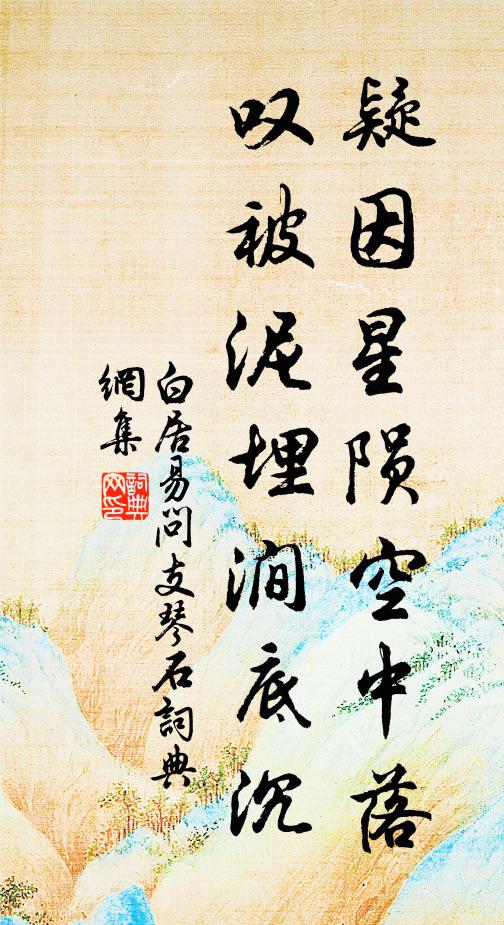 疑因星陨空中落
叹被泥埋涧底沉
白居易问支琴石詞典
網集
詞典
网印